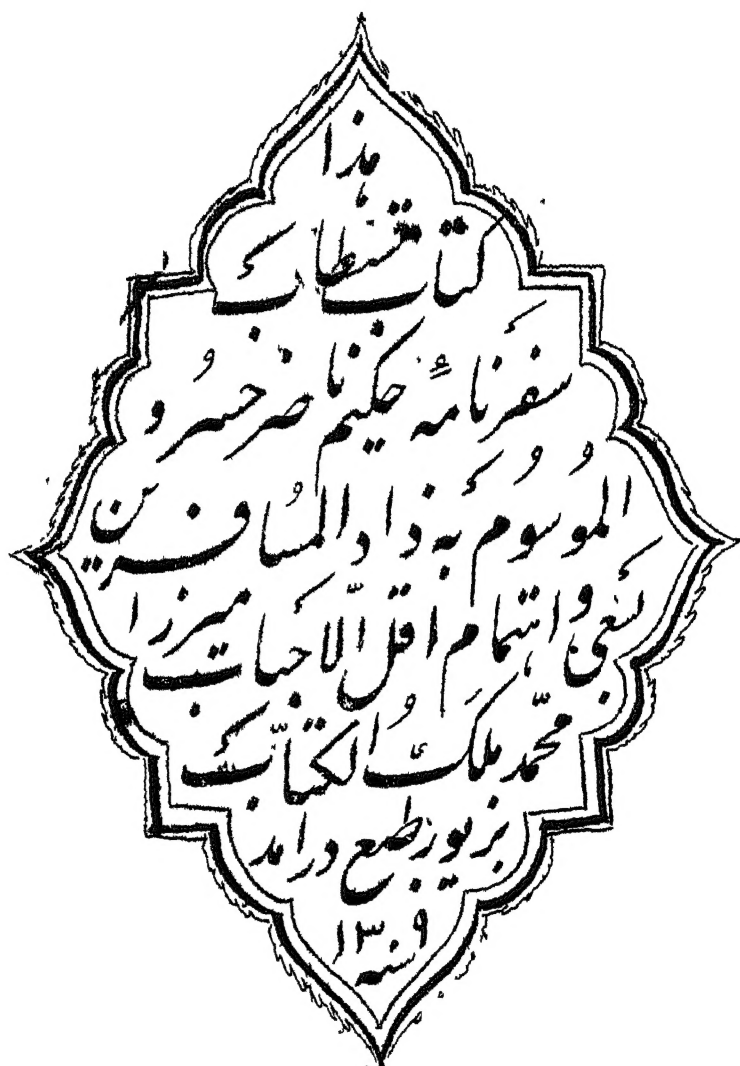 هذا
کتاب مستطاب
سفرنامهٔ حکیم ناصر خسرو
الموسوم به زاد المسافرین
بسعی و اهتمام اقل الاحباب میرزا
محمد ملک الکتاب
بزیور طبع درآمد
سنه ۱۳۰۹